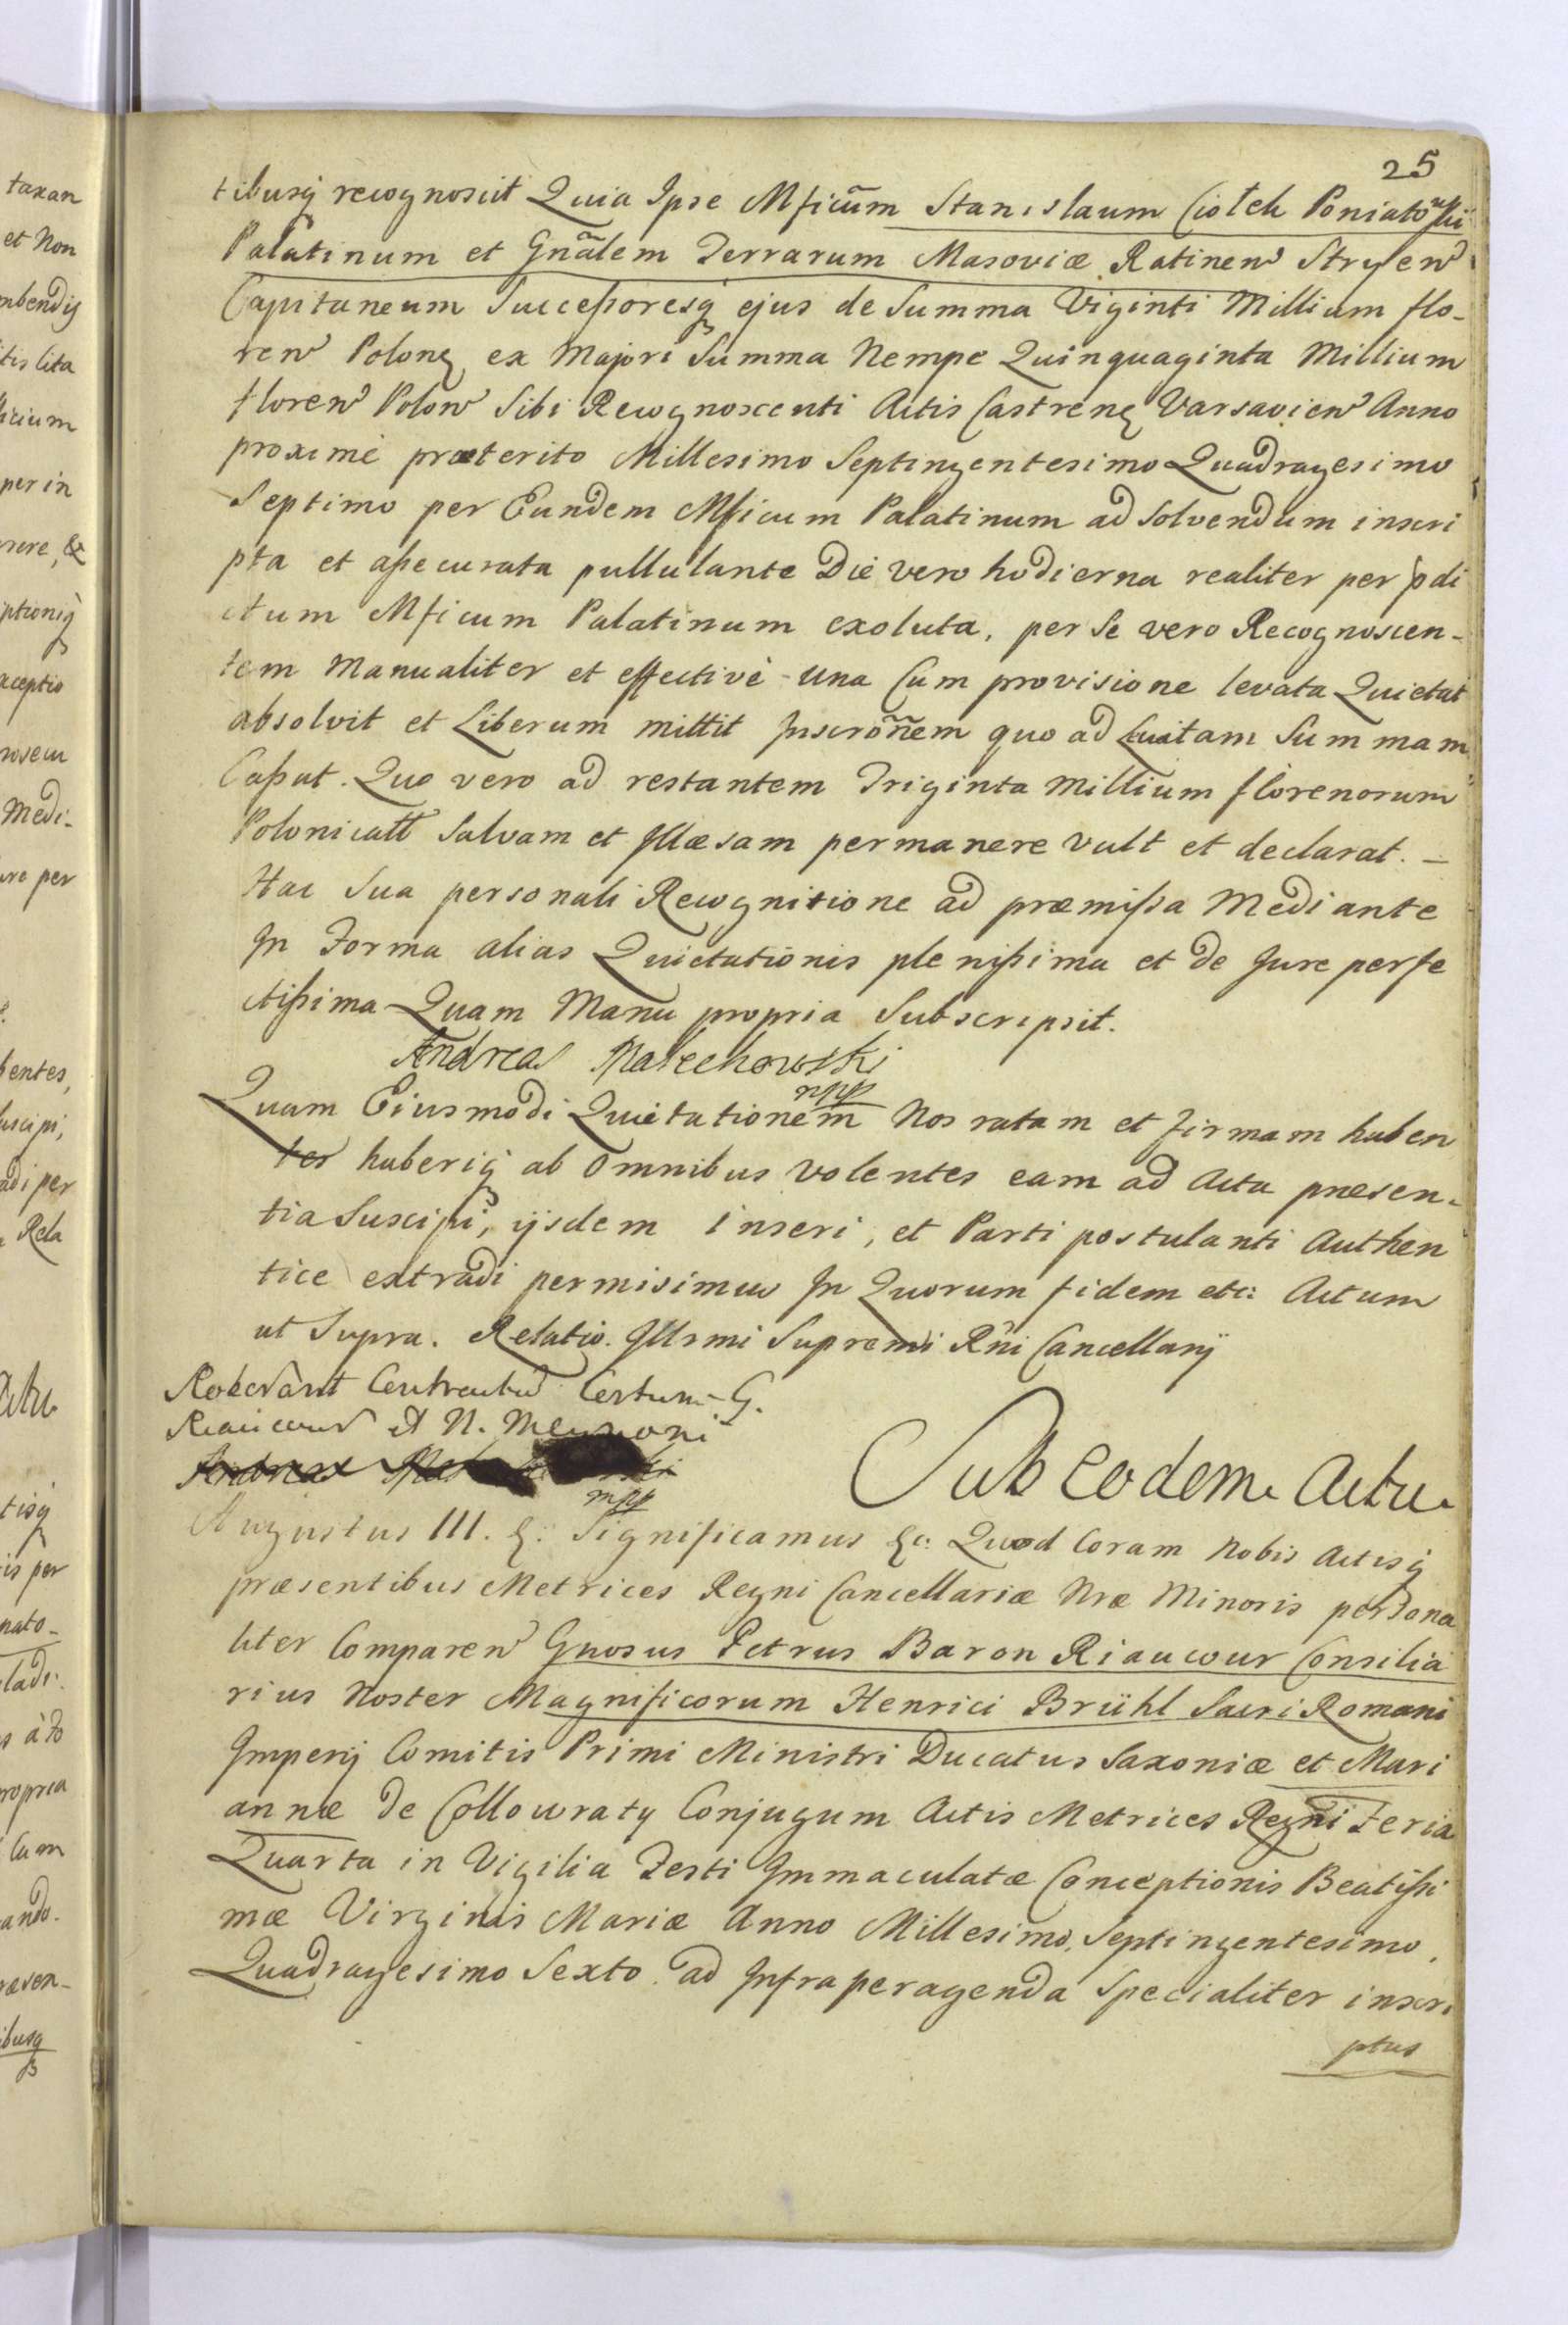 25
tibusq recognoscit Quia Ipse Mficum Stanislaum Ciołek Poniatowski
Palatinum et Gnãlem Terrarum Masoviæ Ratinen Stryen
Capitaneum Successoresq ejus de Summa Viginti Millium flo-
ren Polon ex Majori Summa Nempe Quinquaginta Millium
floren Polon Sibi Recognoscenti Actis Castren Varsavien Anno
proximè præterito Millesimo Septingentesimo Quadragesimo
Septimo per Eundem Mficum Palatinum ad Solvendum inscri
pta et assecurata pullulante Die vero hodierna realiter per pdi
ctum Mficum Palatinum exoluta, per Se vero Recognoscen-
tem Manualiter et effectivè una Cum provisione levata Quietat
absolvit et Liberum mittit Inscrõnem quo ad Summam
Cassat. Quo vero ad restantem Triginta Millium florenorum
Polonicall Salvam et Illæsam permanere vult et declarat. —
Hac Sua personali Recognitione ad præmissa Mediante
In Forma alias Quietationis plenissima et de Jure perfe
ctissima Quam Manu propria Subscripsit.
Andreas
mpp
Quam Eiusmodi Quietationem Nos ratam et firmam haben
tes haberiq ab Omnibus volentes eam ad Acta præsen-
tia Suscipi, ijsdem inseri, et Parti postulanti Authen
tice extradi permisimus In Quorum fidem etc: Actum
ut Supra. Relatio. Illrmi Supremi Rñi Cancellarij
G.
Riaucour et N.
mpp
Sub Eodem Actu
Augustus III. &. Significamus &c: Quod Coram Nobis Actisq
præsentibus Metrices Regni Cancellariæ Nræ Minoris persona
liter Comparen Gnosus Petrus Baron Riaucour Consilia
rius Noster Magnificorum Henrici Brühl Sacri Romani
Imperij Comitis Primi Ministri Ducatus Saxoniæ et Mari
annæ de Collowraty Conjugum Actis Metrices Regni Feria
Quarta in Vigilia Festi Immaculatæ Conceptionis Beatissi
mæ Virginis Mariæ Anno Millesimo, Septingentesimo,
Quadragesimo Sexto ad Infra peragenda Specialiter inscri
ptus